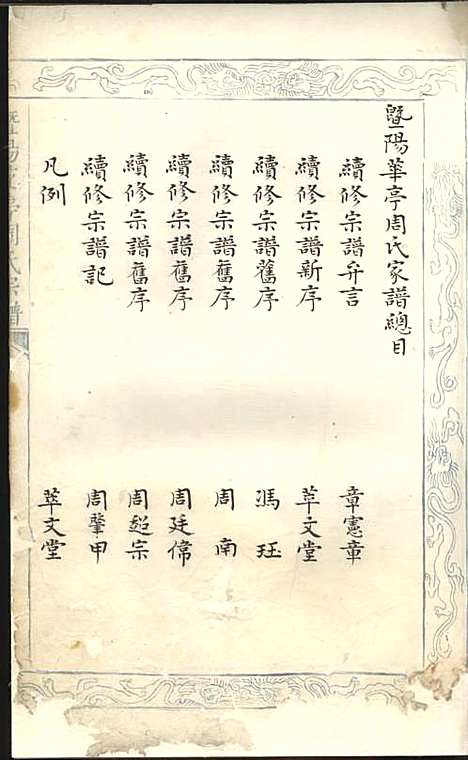 暨陽華亭周氏家譜總目
續修宗譜弁言 章憲章
續修宗譜新序 萃文堂
續修宗譜舊序 馮珏
續修宗譜舊序 周南
續修宗譜舊序 周廷儒
續修宗譜舊序 周超宗
續修宗譜記 周肇甲
凡例 萃文堂
暨陽華亭周氏宗譜